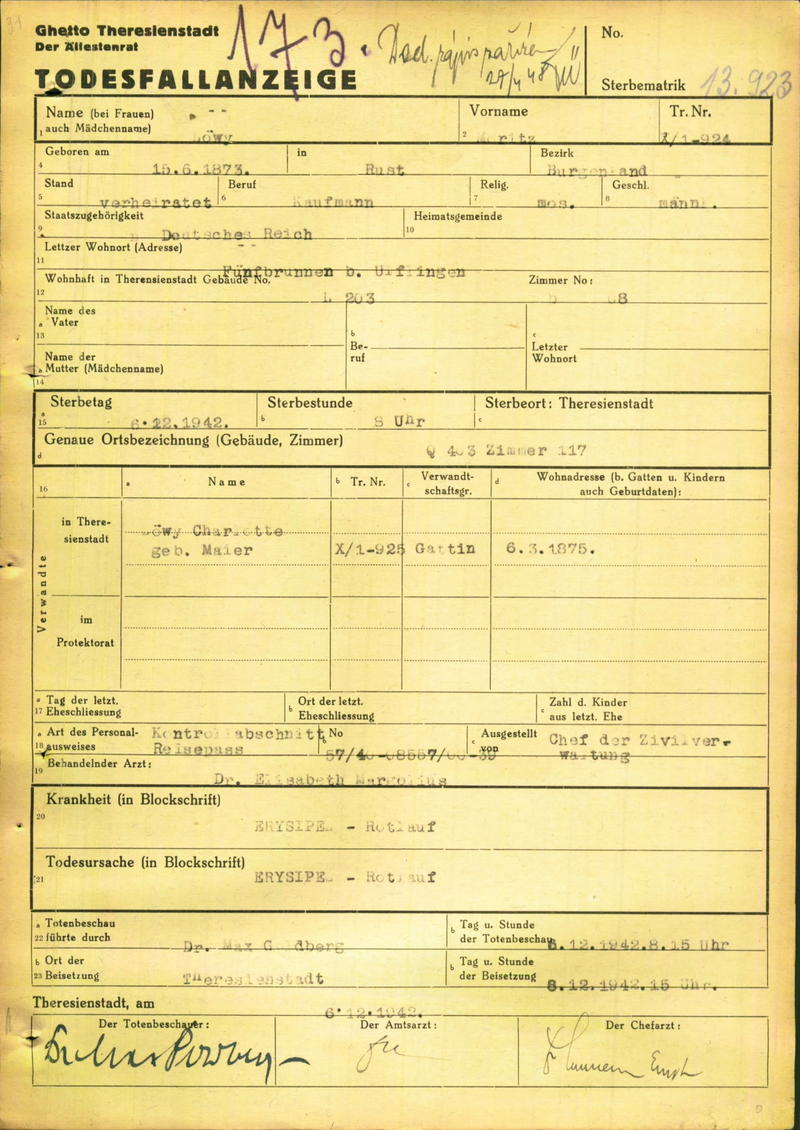 Ghetto Theresienstadt
Der Ältestenrat
TODESFALLANZEIGE
173.
No.
Sterbematrik 13.923
Name (bei Frauen)
1 auch Mädchenname)
Löwy
Vorname
2 Moritz
Tr. Nr.
X/1-924
Geboren am
4 15.6.1873.
in
Rust
Bezirk
Burgenland
Stand
5 verheiratet
Beruf
6 Kaufmann
Relig.
7 mos.
Geschl.
8 männl.
Staatszugehörigkeit
9 Deutsches Reich
Heimatsgemeinde
10
Lettzer Wohnort (Adresse)
11
Fünfbrunnen b. Ulflingen
Wohnhaft in Therensienstadt Gebäude No.
12 L 203
Zimmer No:
8
Name des
a Vater
13
Name der
a Mutter (Mädchenname)
14
b
Be-
ruf
c
Letzter
Wohnort
Sterbetag
a 15 6.12.1942.
Sterbestunde
b 8 Uhr
Sterbeort: Theresienstadt
c
Genaue Ortsbezeichnung (Gebäude, Zimmer)
d Q 403 Zimmer 117
16
a Name
b Tr. Nr.
c Verwandt-
schaftsgr.
d Wohnadresse (b. Gatten u. Kindern
auch Geburtdaten):
Verwandte
in There-
sienstadt
Löwy Charlotte
geb. Maier X/1-925 Gattin 6.3.1875.
im
Protektorat
a Tag der letzt.
17 Eheschliessung
b Ort der letzt.
Eheschliessung
c Zahl d. Kinder
aus letzt. Ehe
a Art des Personal-
18 ausweises
Kontrollabschnitt
Reisepass
b No
c Ausgestellt
von
Chef der Zivilver-
waltung
Behandelnder Arzt:
19 Dr. Elisabeth Margolius
Krankheit (in Blockschrift)
20
ERYSIPEL - Rotlauf
Todesursache (in Blockschrift)
21 ERYSIPEL - Rotlauf
a Totenbeschau
22 führte durch
Dr. Max Goldberg
b Tag u. Stunde
der Totenbeschau
6.12.1942.8.15 Uhr
b Ort der
23 Beisetzung
Theresienstadt
b Tag u. Stunde
der Beisetzung
8.12.1942.15 Uhr.
Theresienstadt, am
6.12.1942.
Der Totenbeschauer:
Der Amtsarzt:
Der Chefarzt: